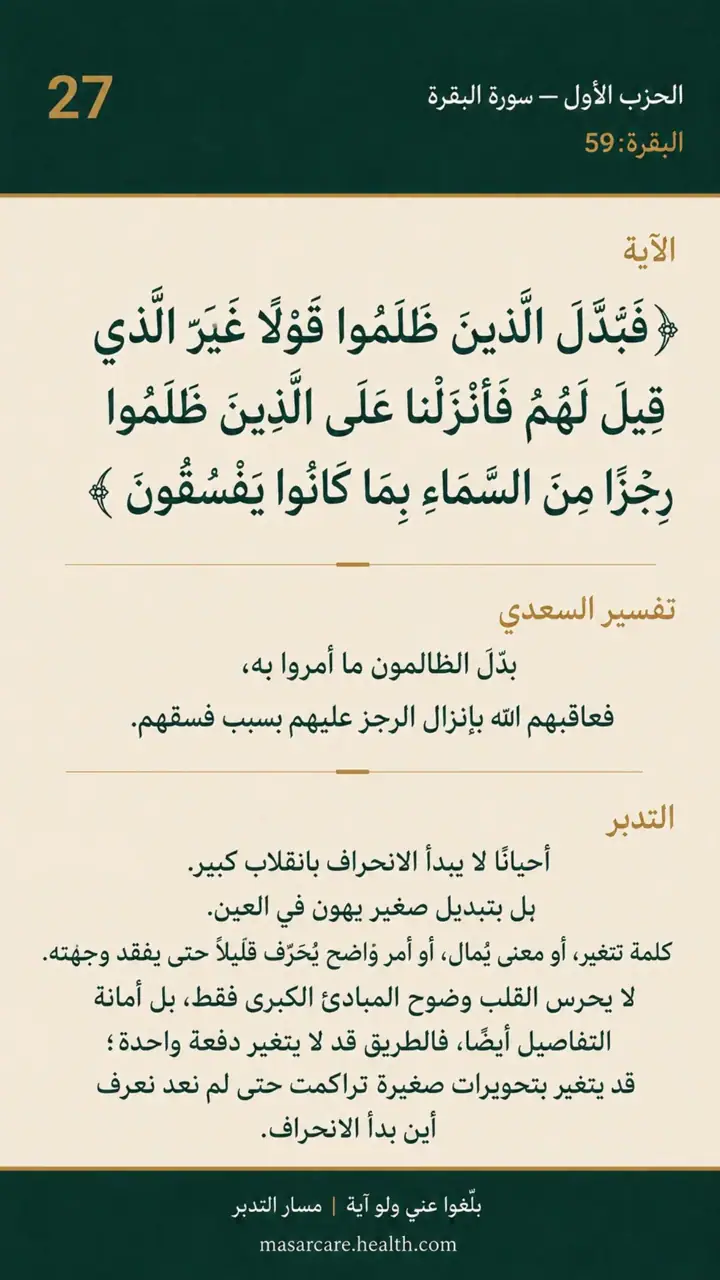 27
الحزب الأول — سورة البقرة
البقرة: 59
الآية
﴿فَبَّدَّلَ الَّذينَ ظَلَمُوا قَوْلًا غَيَرّ الَّذي
قِيلَ لَهُمُ فَأَنْزَلْنا عَلَى الَّذِينَ ظَلَمُوا
رِجْزًا مِنَ السَّمَاءِ بِمَا كَانُوا يَفْسُقُونَ ﴾
تفسير السعدي
بدّلَ الظالمون ما أمروا به،
فعاقبهم الله بإنزال الرجز عليهم بسبب فسقهم.
التدبر
أحيانًا لا يبدأ الانحراف بانقلاب كبير.
بل بتبديل صغير يهون في العين.
كلمة تتغير، أو معنى يُمال، أو أمر وَاضح يُحَرّف قلَيلاً حتى يفقد وجهته.
لا يحرس القلب وضوح المبادئ الكبرى فقط، بل أمانة
التفاصيل أيضًا، فالطريق قد لا يتغير دفعة واحدة؛
قد يتغير بتحويرات صغيرة تراكمت حتى لم نعد نعرف
أين بدأ الانحراف.
بلّغوا عني ولو آية | مسار التدبر
masarcare.health.com